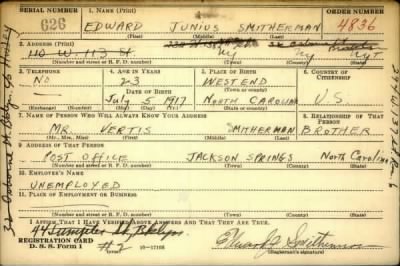 SERIAL NUMBER
1. NAME (Print)
ORDER NUMBER
626
EDWARD JUNIUS SMITHERMAN
4836
(First) (Middle) (Last)
2. ADDRESS (Print)
110 W. 113 St. NY NY NY
(Number and street or R. F. D. number) (Town) (County) (State)
3. TELEPHONE
4. AGE IN YEARS
5. PLACE OF BIRTH
6. COUNTRY OF CITIZENSHIP
NO
23
WEST END
DATE OF BIRTH
July 5 1917
NORTH CAROLINA
U.S.
(Exchange) (Number)
(Mo.) (Day) (Yr.)
(State or country)
7. NAME OF PERSON WHO WILL ALWAYS KNOW YOUR ADDRESS
8. RELATIONSHIP OF THAT PERSON
MR. VERTIS SMITHERMAN
BROTHER
(Mr., Mrs., Miss) (First) (Middle) (Last)
9. ADDRESS OF THAT PERSON
POST OFFICE JACKSON SPRINGS North Carolina
(Number and street or R. F. D. number) (Town) (County) (State)
10. EMPLOYER'S NAME
UNEMPLOYED
11. PLACE OF EMPLOYMENT OR BUSINESS
(Number and street or R. F. D. number) (Town) (County) (State)
I AFFIRM THAT I HAVE VERIFIED ABOVE ANSWERS AND THAT THEY ARE TRUE.
44 Sumpter St. Bklyn
REGISTRATION CARD
D. S. S. Form 1
#2
Edward J. Smitherman
(Registrant's signature)